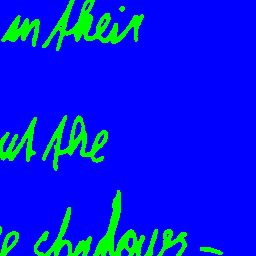 in their
the
shadows -